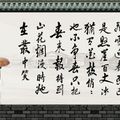 是悬崖百丈冰
犹有花枝俏俏
也不争春只把
春来报待到
山花烂漫时她
在丛中笑